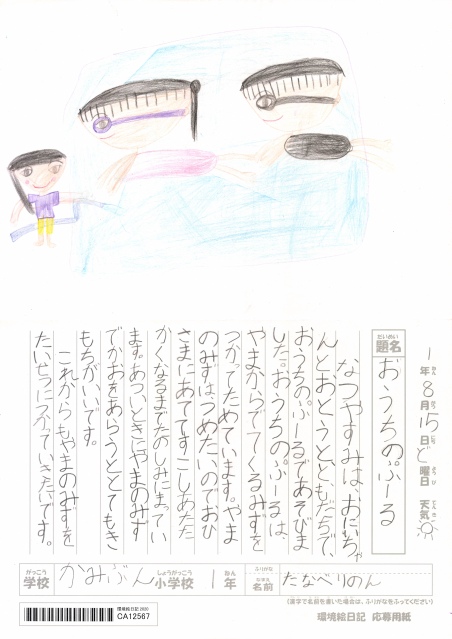 1年8月15日ど曜日 天気
だいめい
題名 おうちのぷーる
なつやすみは、おにいちゃ
んとおとうととともだちで
おうちのぷーるであそびま
した。おうちのぷーるは、
やまからでてくるみずを
つかってためています。やま
のみずはつめたいのでおひ
さまにあててすこしあたた
かくなるまでたのしみまってい
ます。あついときにやまのみず
でかおをあらうととてもき
もちがいいです。
これからもやまのみずを
たいせつにつかっていきたいです。
がっこう しょうがっこう ねん
学校 かみぶん小学校 1年
ふりがな
なまえ
名前 たなべりのん
(漢字で名前を書いた場合は、ふりがなをふってください)
環境絵日記 2020
CA12567
環境絵日記 応募用紙